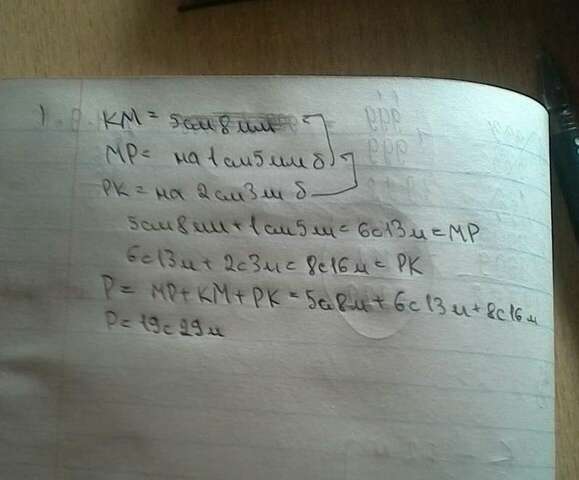 1. КМ = 5см8мм
МР= на 1см5мм б
РК = на 2см3м б
5см8мм + 1см5м = 6с13м = МР
6с13м + 2с3м = 8с16м = РК
Р = МР+КМ+РК = 5с8м + 6с13м + 8с16м
Р = 19с29м